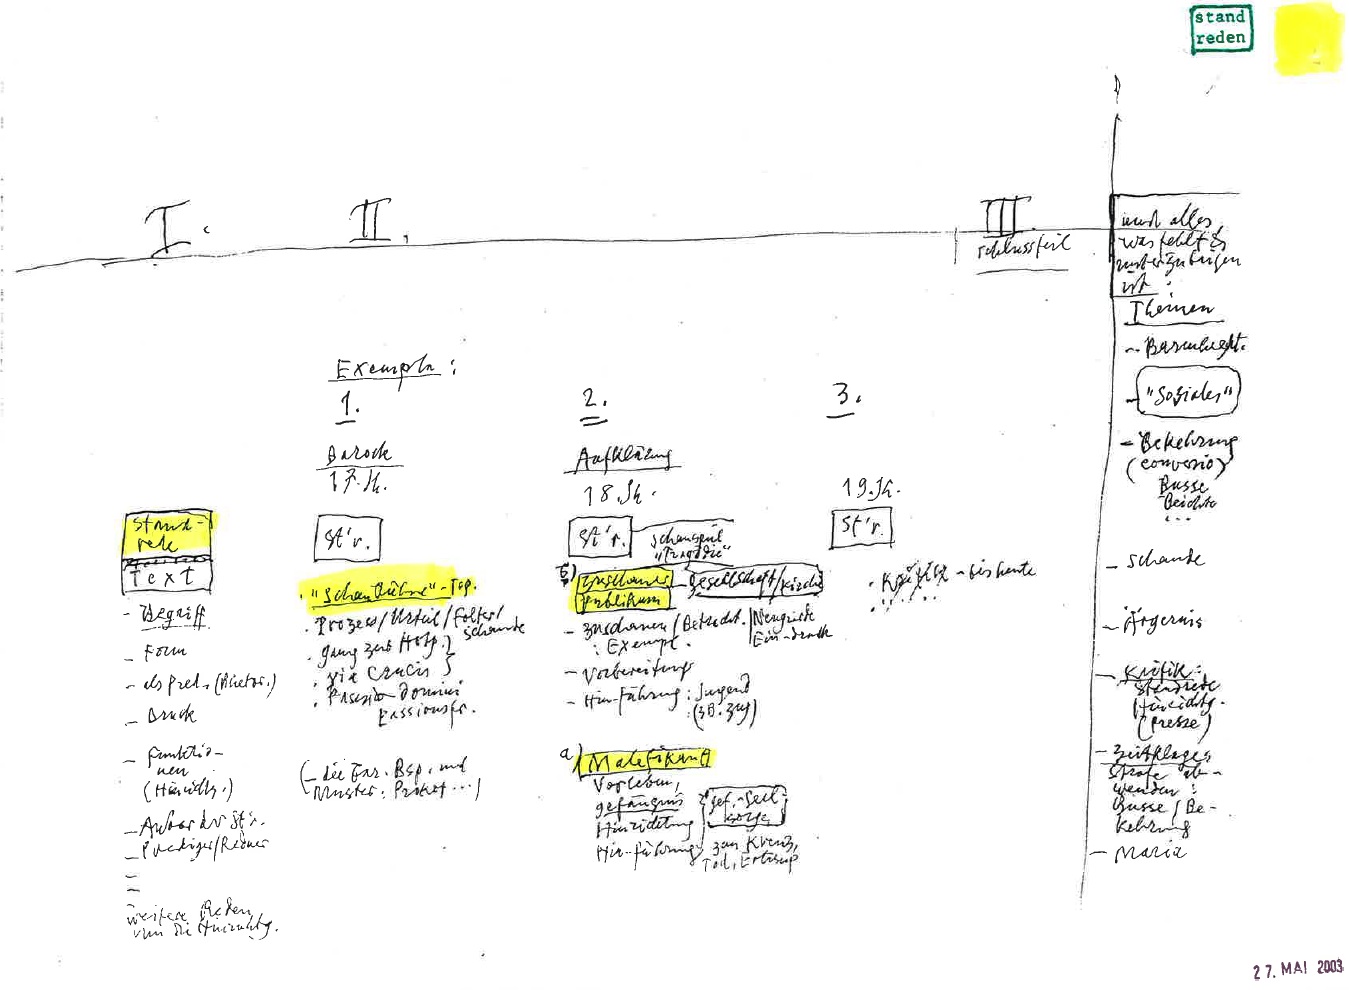 stand
reden
I.
II.
III
Schlussteil
und alles,
was fehlt &
unterzubringen
ist:
Themen
- Barmherzht.
- "Soziales"
- Bekehrung
(conversio)
Busse
Beichte
...
- Schande
- Ärgernis
- Kritik:
Standrede
Hinrichtg.
(Presse)
- Zeitklagen
Strafe ab-
wenden:
Busse / Be-
kehrung
- Maria
Exempla:
1.
2.
3.
Barock
17. Jh.
Aufklärung
18. Jh.
19. Jh.
Stand-
rede
Text
- Begriff
- Form
- als Pred. (Rhetor.)
- Druck
- Funktio-
nen
(Hinrichtg.)
- Autor der St'r.
- Prediger/Redner
-
-
-
weitere Reden
um die Hinrichtg.
St'r.
. "Schaubühne"-Top.
. Prozess/Urteil/Folter/
Schande
. Gang zur
. via crucis
. Passio domini
Passionsfr.
(- die Bsp. und
Muster: ...)
St'r.
Schauspiel
"Tragödie"
b) Zuschauer
Publikum
Gesellschaft/Kirche
- Zuschauen / Betracht. / Neugierde
: Exempl. Ein-druck
- Vorbereitung
- Hin-führung: Jugend
(zB. Zug)
a) Malefikant
Vorleben,
Gefängnis
Hinrichtung
Hin-führung
Gef.-Seel
sorge
zum Kreuz,
Tod,
St'r.
. Kritik - bis heute
. . . . . .
27. MAI 2003